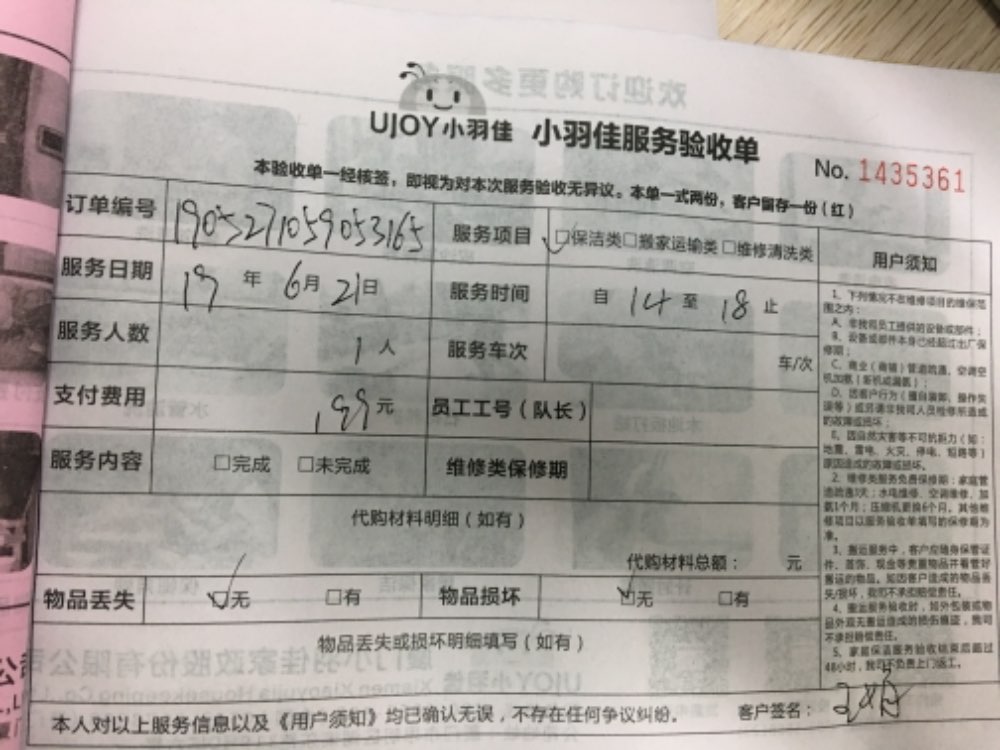 UJOY小羽佳 小羽佳服务验收单
No. 1435361
本验收单一经核签，即视为对本次服务验收无异议。本单一式两份，客户留存一份（红）
订单编号 1905271059053165 服务项目 ☑保洁类□搬家运输类□维修清洗类
服务日期 19年6月21日 服务时间 自14至18止
服务人数 1人 服务车次 车/次
支付费用 199元 员工工号（队长）
服务内容 □完成 □未完成 维修类保修期
代购材料明细（如有）
代购材料总额： 元
物品丢失 ☑无 □有 物品损坏 ☑无 □有
物品丢失或损坏明细填写（如有）
本人对以上服务信息以及《用户须知》均已确认无误，不存在任何争议纠纷。 客户签名：
用户须知
1、下列情况不在维修项目的维保范
围之内：
A、非我司员工提供的设备或部件；
B、设备或部件本身已经超过出厂保
修期；
C、商业（商铺）管道疏通，空调空
机加氨（新机或漏氨）；
D、因客户行为（擅自装卸、操作失
误等）或另请非我司人员检修所造成
的故障或损坏；
E、因自然灾害等不可抗拒力（如：
地震、雷电、火灾、停电、短路等）
原因造成的故障或损坏。
2、维修类服务免费保修期：家庭管
道疏通3天；水电维修、空调维修、加
氨1个月；压缩机更换6个月。其他维
修项目以服务验收单填写的保修期为
准。
3、搬运服务中，客户应随身保管证
件、首饰、现金等贵重物品并看管好
搬运的物品。如因客户造成的物品丢
失/损坏，我司不承担赔偿责任。
4、搬运服务验收时，如外包装或物
品外观无搬运造成的损伤痕迹，我司
不承担赔偿责任。
5、家庭保洁服务验收结束后超过
48小时，我司不负责上门返工。